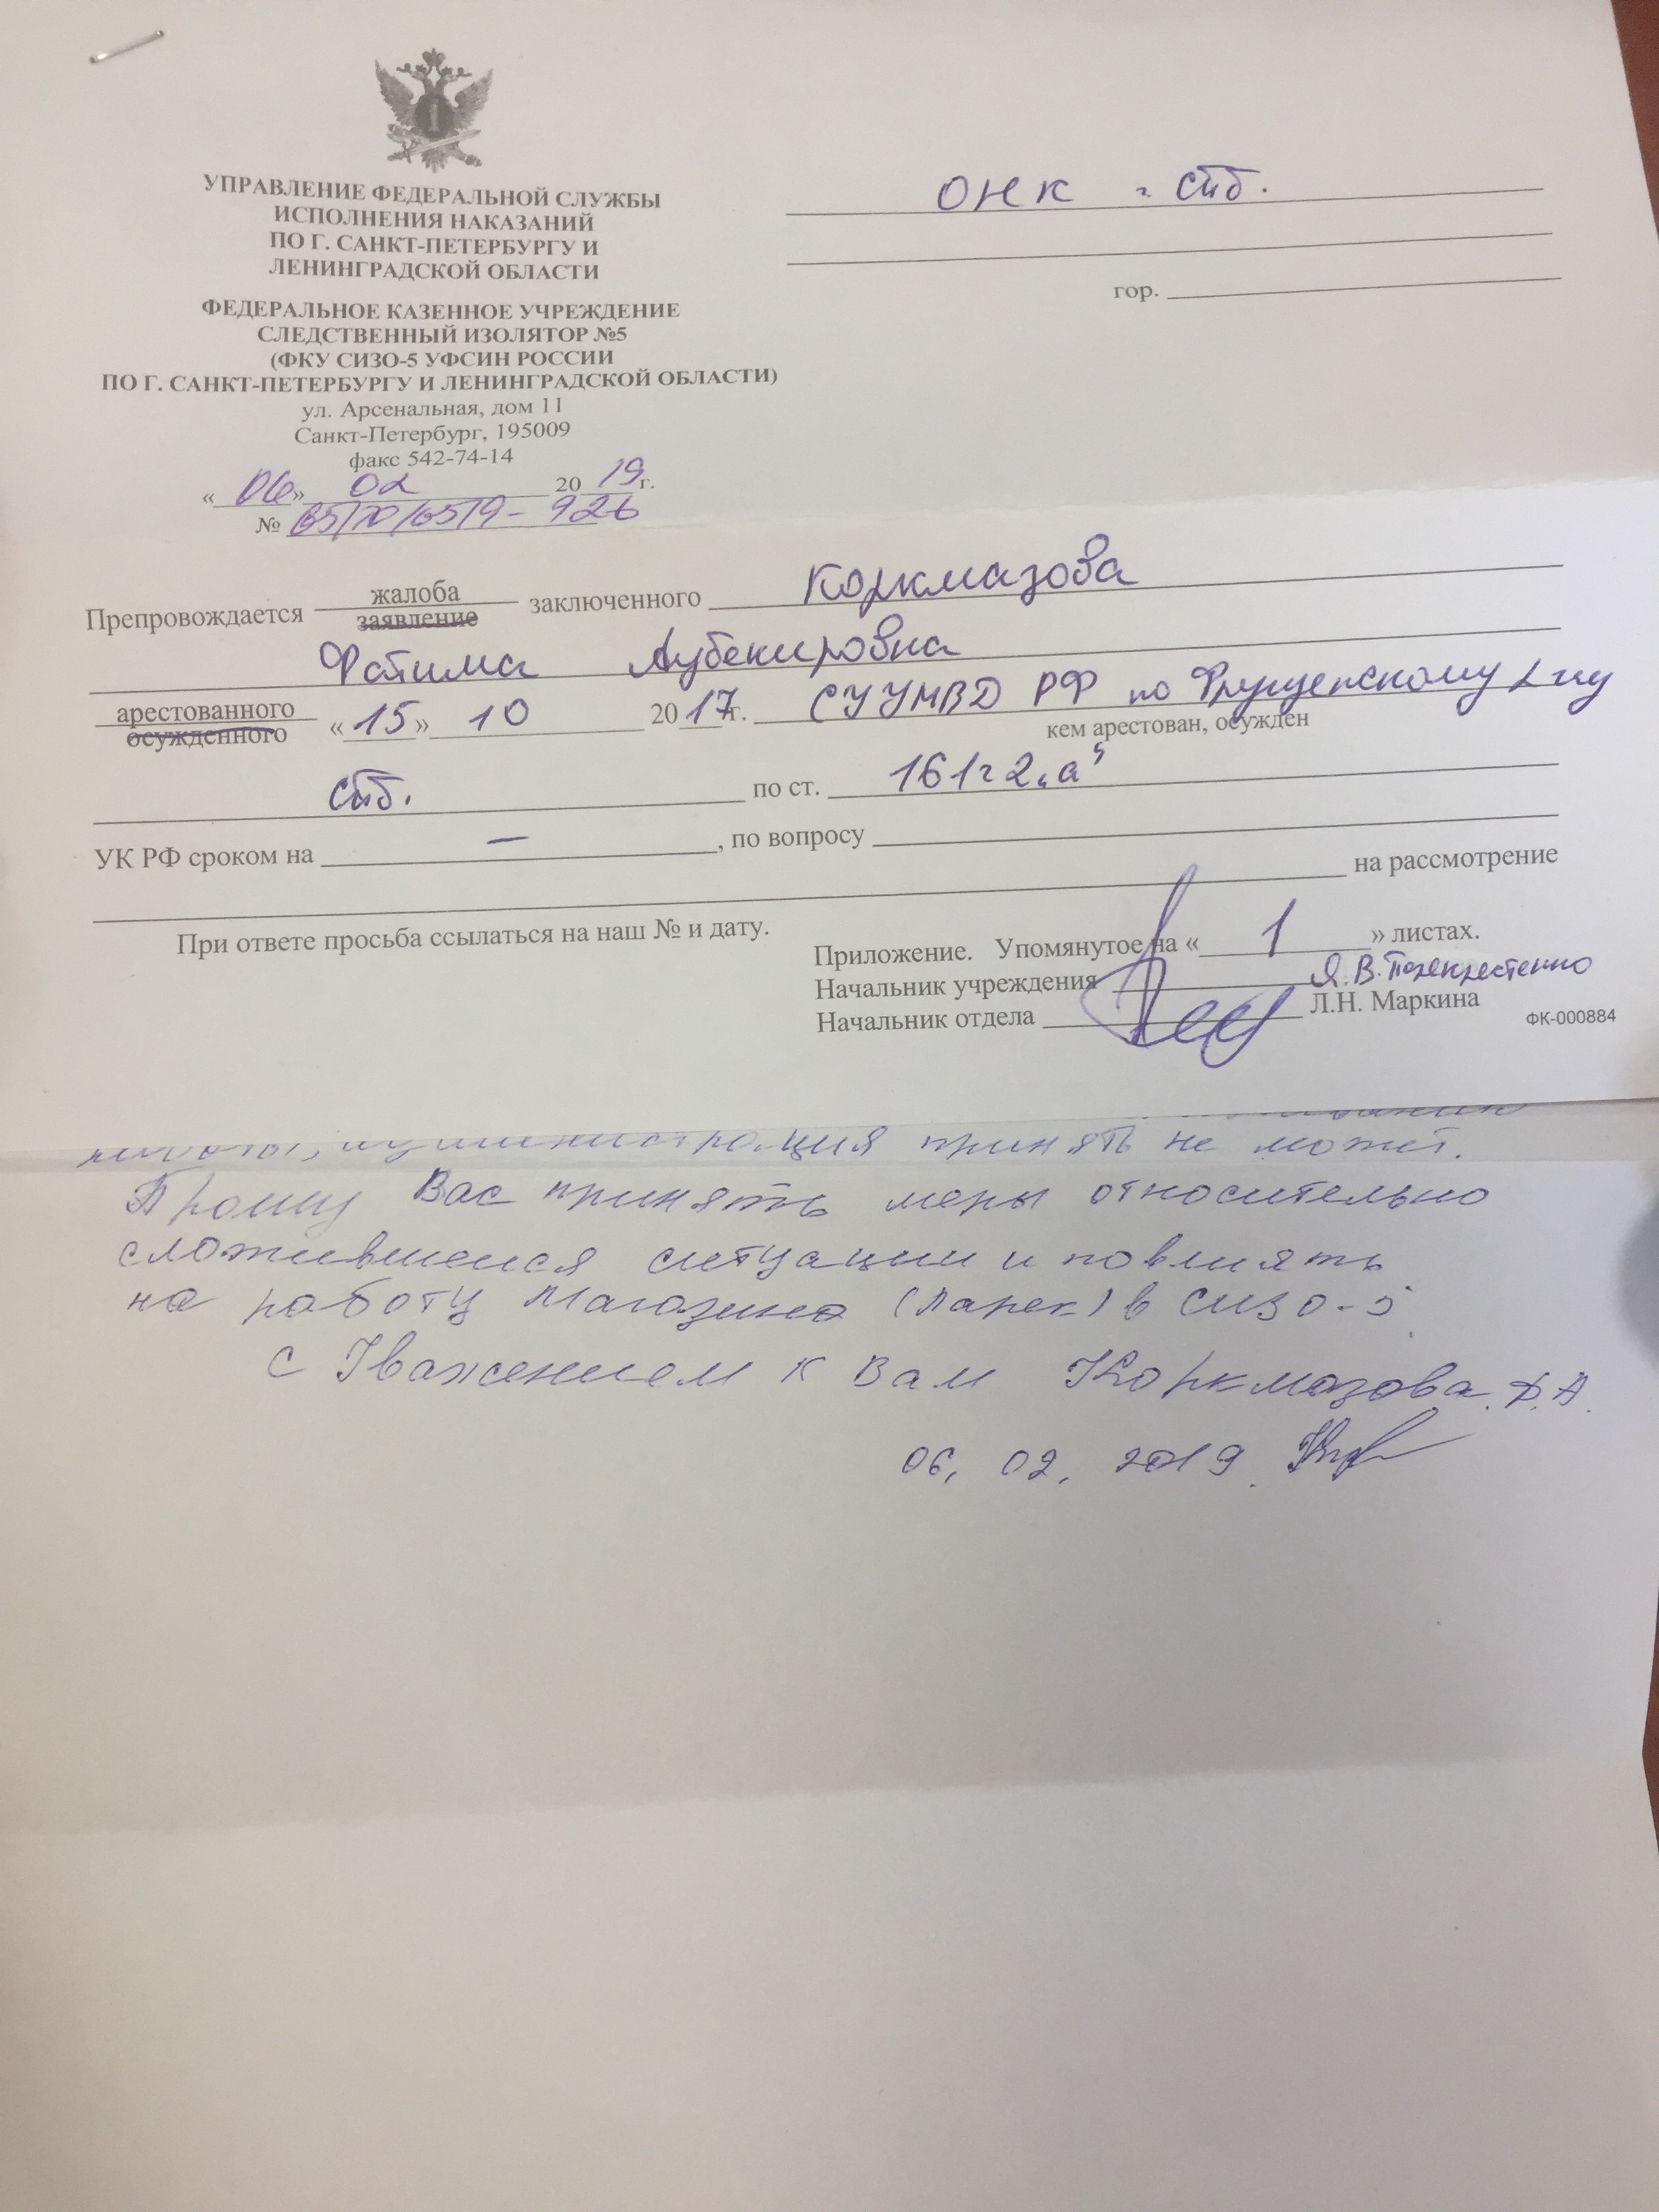 УПРАВЛЕНИЕ ФЕДЕРАЛЬНОЙ СЛУЖБЫ
ИСПОЛНЕНИЯ НАКАЗАНИЙ
ПО Г. САНКТ-ПЕТЕРБУРГУ И
ЛЕНИНГРАДСКОЙ ОБЛАСТИ
ФЕДЕРАЛЬНОЕ КАЗЕННОЕ УЧРЕЖДЕНИЕ
СЛЕДСТВЕННЫЙ ИЗОЛЯТОР №5
(ФКУ СИЗО-5 УФСИН РОССИИ
ПО Г. САНКТ-ПЕТЕРБУРГУ И ЛЕНИНГРАДСКОЙ ОБЛАСТИ)
ул. Арсенальная, дом 11
Санкт-Петербург, 195009
факс 542-74-14
«06» 02 2019г.
№ 65/70/65/9-926
ОНК г. СПб.
гор.
Препровождается жалоба заявление заключенного Коркмазова
Фатима Аубекировна
арестованного осужденного «15» 10 2017г. СУ УМВД РФ по Фрунзенскому
кем арестован, осужден
СПб. по ст. 161ч2„а"
УК РФ сроком на —, по вопросу
на рассмотрение
При ответе просьба ссылаться на наш № и дату.
Приложение. Упомянутое на «1» листах.
Начальник учреждения Я.В. Перекрестенко
Начальник отдела Л.Н. Маркина
ФК-000884
администрация принять не может.
Прошу Вас принять меры относительно
сложившейся ситуации и повлиять
на работу Магазина (Ларек) в СИЗО-5.
С Уважением к Вам Коркмазова Ф.А.
06.02.2019.